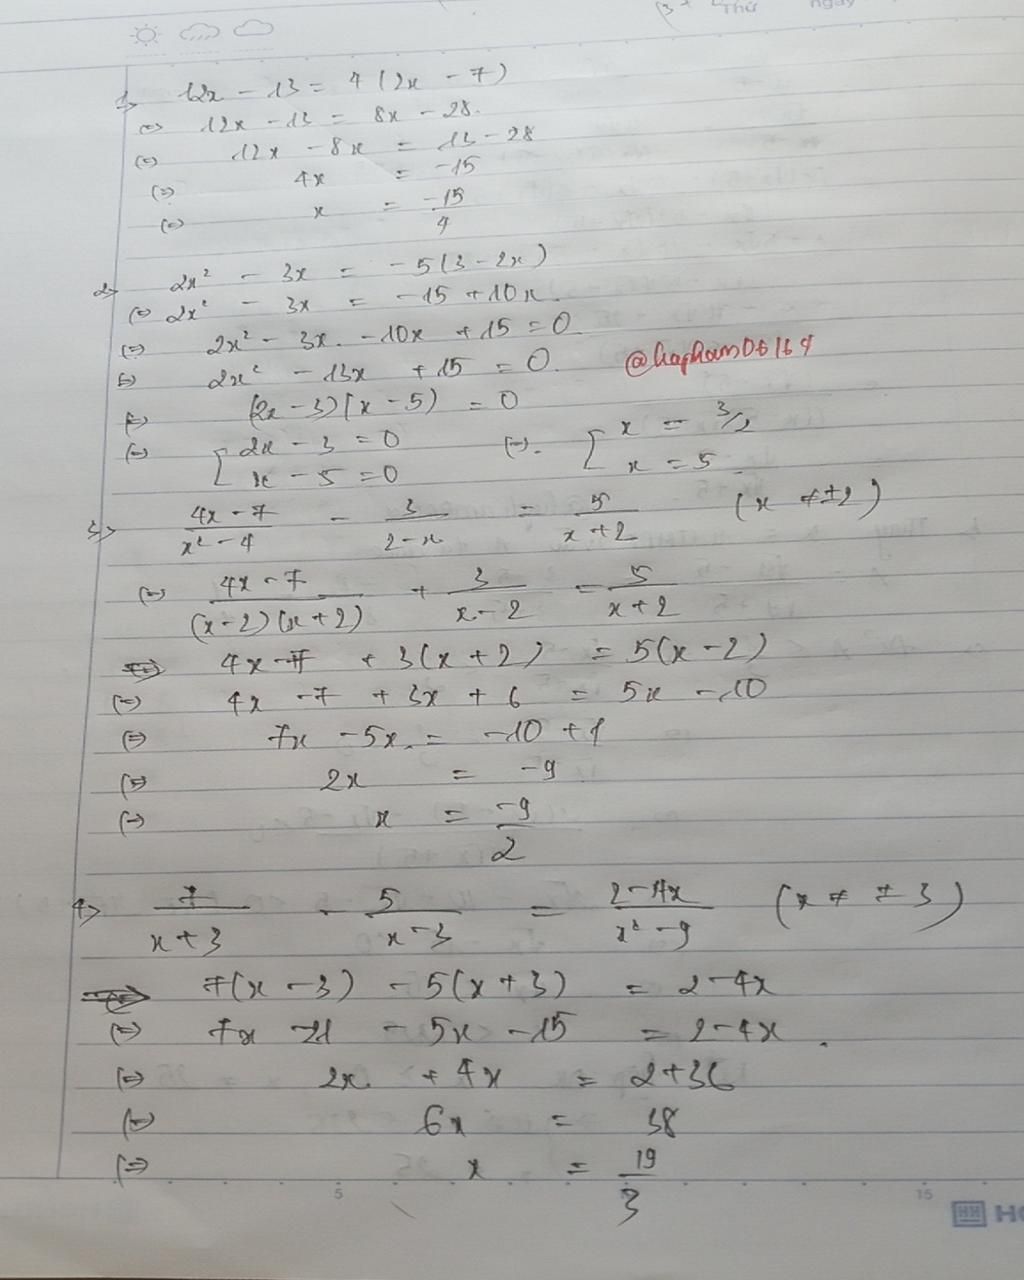 Thứ ngày
1, 12x - 13 = 4(2x - 7)
⇔ 12x - 13 = 8x - 28.
⇔ 12x - 8x = 13 - 28
⇔ 4x = -15
⇔ x = -15/4
2, 2x² - 3x = -5(3 - 2x)
⇔ 2x² - 3x = -15 + 10x.
⇔ 2x² - 3x - 10x + 15 = 0
⇔ 2x² - 13x + 15 = 0.
@hapham06164
⇔ (2x - 3)(x - 5) = 0
⇔ [ 2x - 3 = 0 ⇔ [ x = 3/2
x - 5 = 0 x = 5
3, (4x - 7)/(x² - 4) - 3/(2 - x) = 5/(x + 2) (x ≠ ±2)
⇔ (4x - 7)/((x - 2)(x + 2)) + 3/(x - 2) = 5/(x + 2)
⇒ 4x - 7 + 3(x + 2) = 5(x - 2)
⇔ 4x - 7 + 3x + 6 = 5x - 10
⇔ 7x - 5x = -10 + 1
⇔ 2x = -9
⇔ x = -9/2
4, 7/(x + 3) - 5/(x - 3) = (2 - 4x)/(x² - 9) (x ≠ ±3)
⇒ 7(x - 3) - 5(x + 3) = 2 - 4x
⇔ 7x - 21 - 5x - 15 = 2 - 4x.
⇔ 2x + 4x = 2 + 36
⇔ 6x = 38
⇔ x = 19/3
5 15
HH